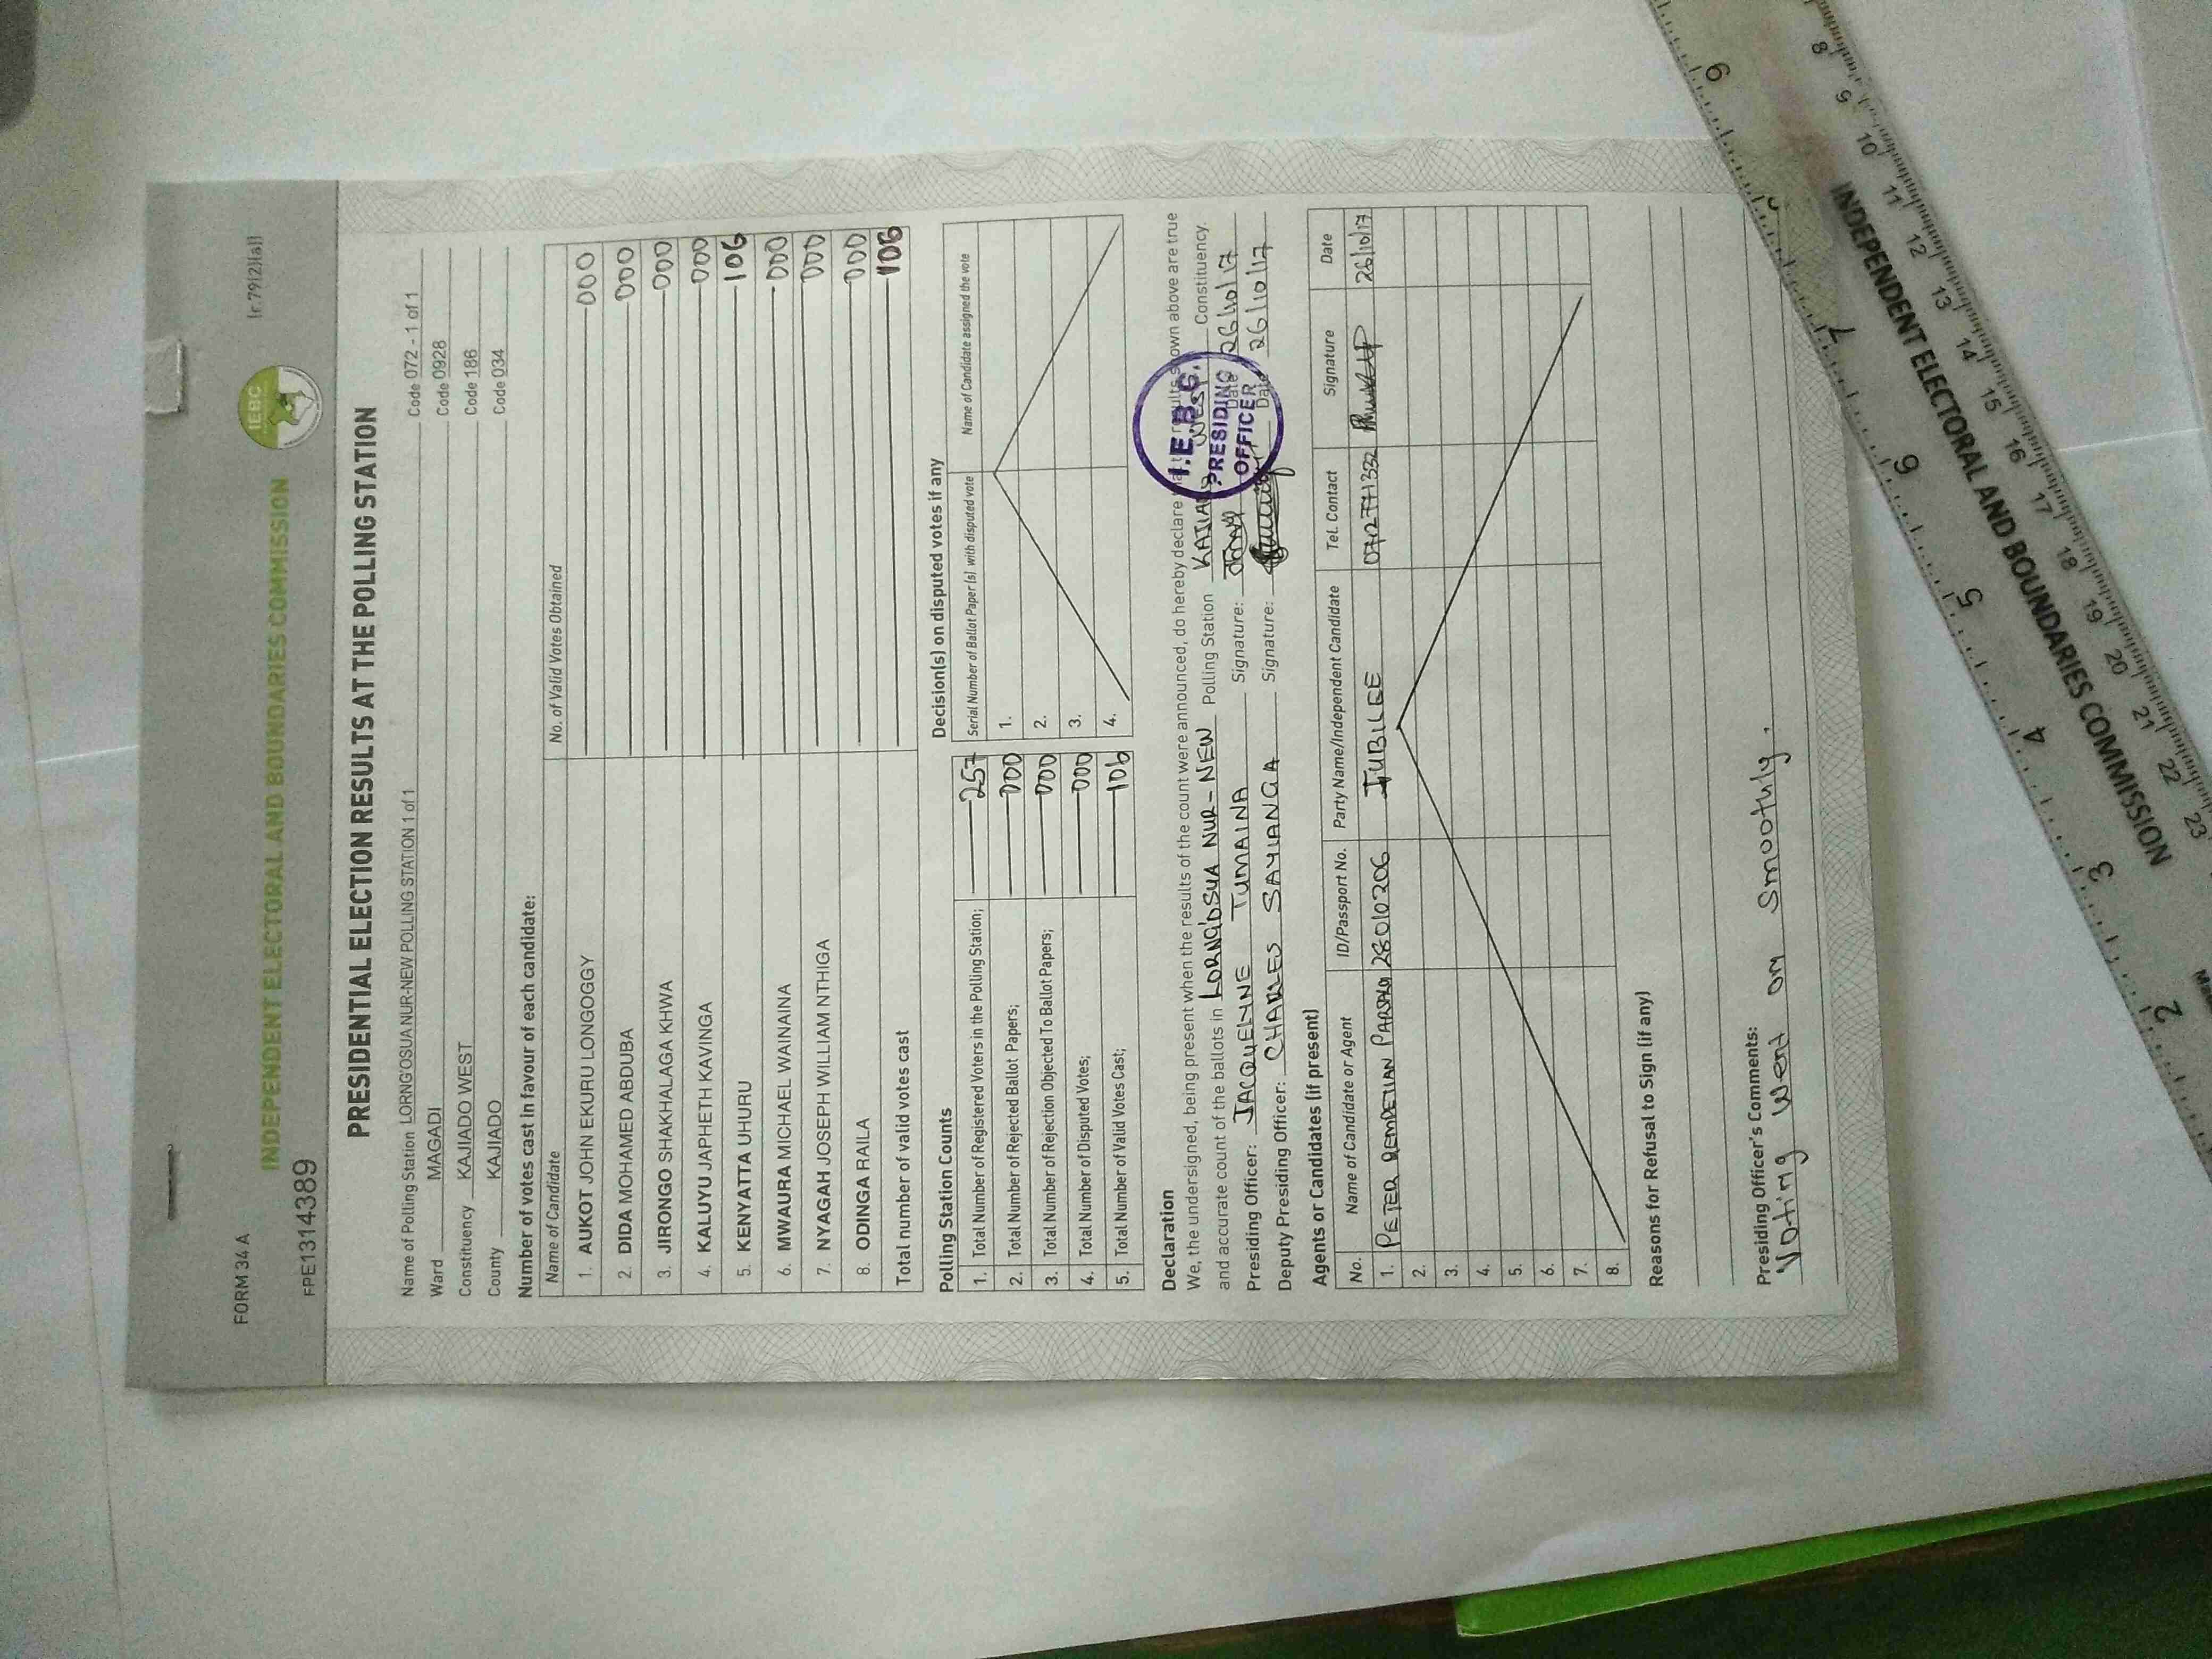 FORM 34 A
[r.79(2)(a)]
INDEPENDENT ELECTORAL AND BOUNDARIES COMMISSION
IEBC
FPE1314389
PRESIDENTIAL ELECTION RESULTS AT THE POLLING STATION
Name of Polling Station LORNG'OSUA NUR-NEW POLLING STATION 1 of 1 Code 072 - 1 of 1
Ward MAGADI Code 0928
Constituency KAJIADO WEST Code 186
County KAJIADO Code 034
Number of votes cast in favour of each candidate:
Name of Candidate No. of Valid Votes Obtained
1. AUKOT JOHN EKURU LONGOGGY 000
2. DIDA MOHAMED ABDUBA 000
3. JIRONGO SHAKHALAGA KHWA 000
4. KALUYU JAPHETH KAVINGA 000
5. KENYATTA UHURU 106
6. MWAURA MICHAEL WAINAINA 000
7. NYAGAH JOSEPH WILLIAM NTHIGA 000
8. ODINGA RAILA 000
Total number of valid votes cast 106
Polling Station Counts
1. Total Number of Registered Voters in the Polling Station; 257
2. Total Number of Rejected Ballot Papers; 000
3. Total Number of Rejection Objected To Ballot Papers; 000
4. Total Number of Disputed Votes; 000
5. Total Number of Valid Votes Cast; 106
Decision(s) on disputed votes if any
Serial Number of Ballot Paper (s) with disputed vote Name of Candidate assigned the vote
1.
2.
3.
4.
Declaration
We, the undersigned, being present when the results of the count were announced, do hereby declare that results shown above are true
and accurate count of the ballots in LORNG'OSUA NUR-NEW Polling Station KAJIADO WEST Constituency.
Presiding Officer: JACQUELYNE TUMAINA Signature: Date 26/10/17
Deputy Presiding Officer: CHARLES SAYIANGA Signature: Date 26/10/17
I.E.B.C.
PRESIDING
OFFICER
Agents or Candidates (if present)
No. Name of Candidate or Agent ID/Passport No. Party Name/Independent Candidate Tel. Contact Signature Date
1. PETER 28010206 JUBILEE 0727771332 26/10/17
2.
3.
4.
5.
6.
7.
8.
Reasons for Refusal to Sign (if any)
Presiding Officer's Comments:
Voting went on smoothly.
INDEPENDENT ELECTORAL AND BOUNDARIES COMMISSION
2 3 4 5 6 7
8 9 10 11 12 13 14 15 16 17 18 19 20 21 22 23